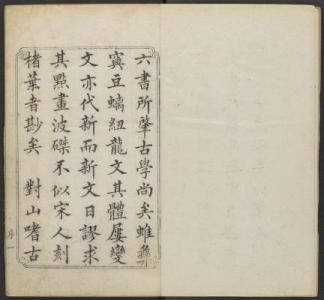 六書所肇古學尚矣蜼彝
寘豆螭紐龍文其體屢變
文亦代新而新文日謬求
其點畫波磔不似宋人刻
楮葉者尠矣 對山嗜古
序一